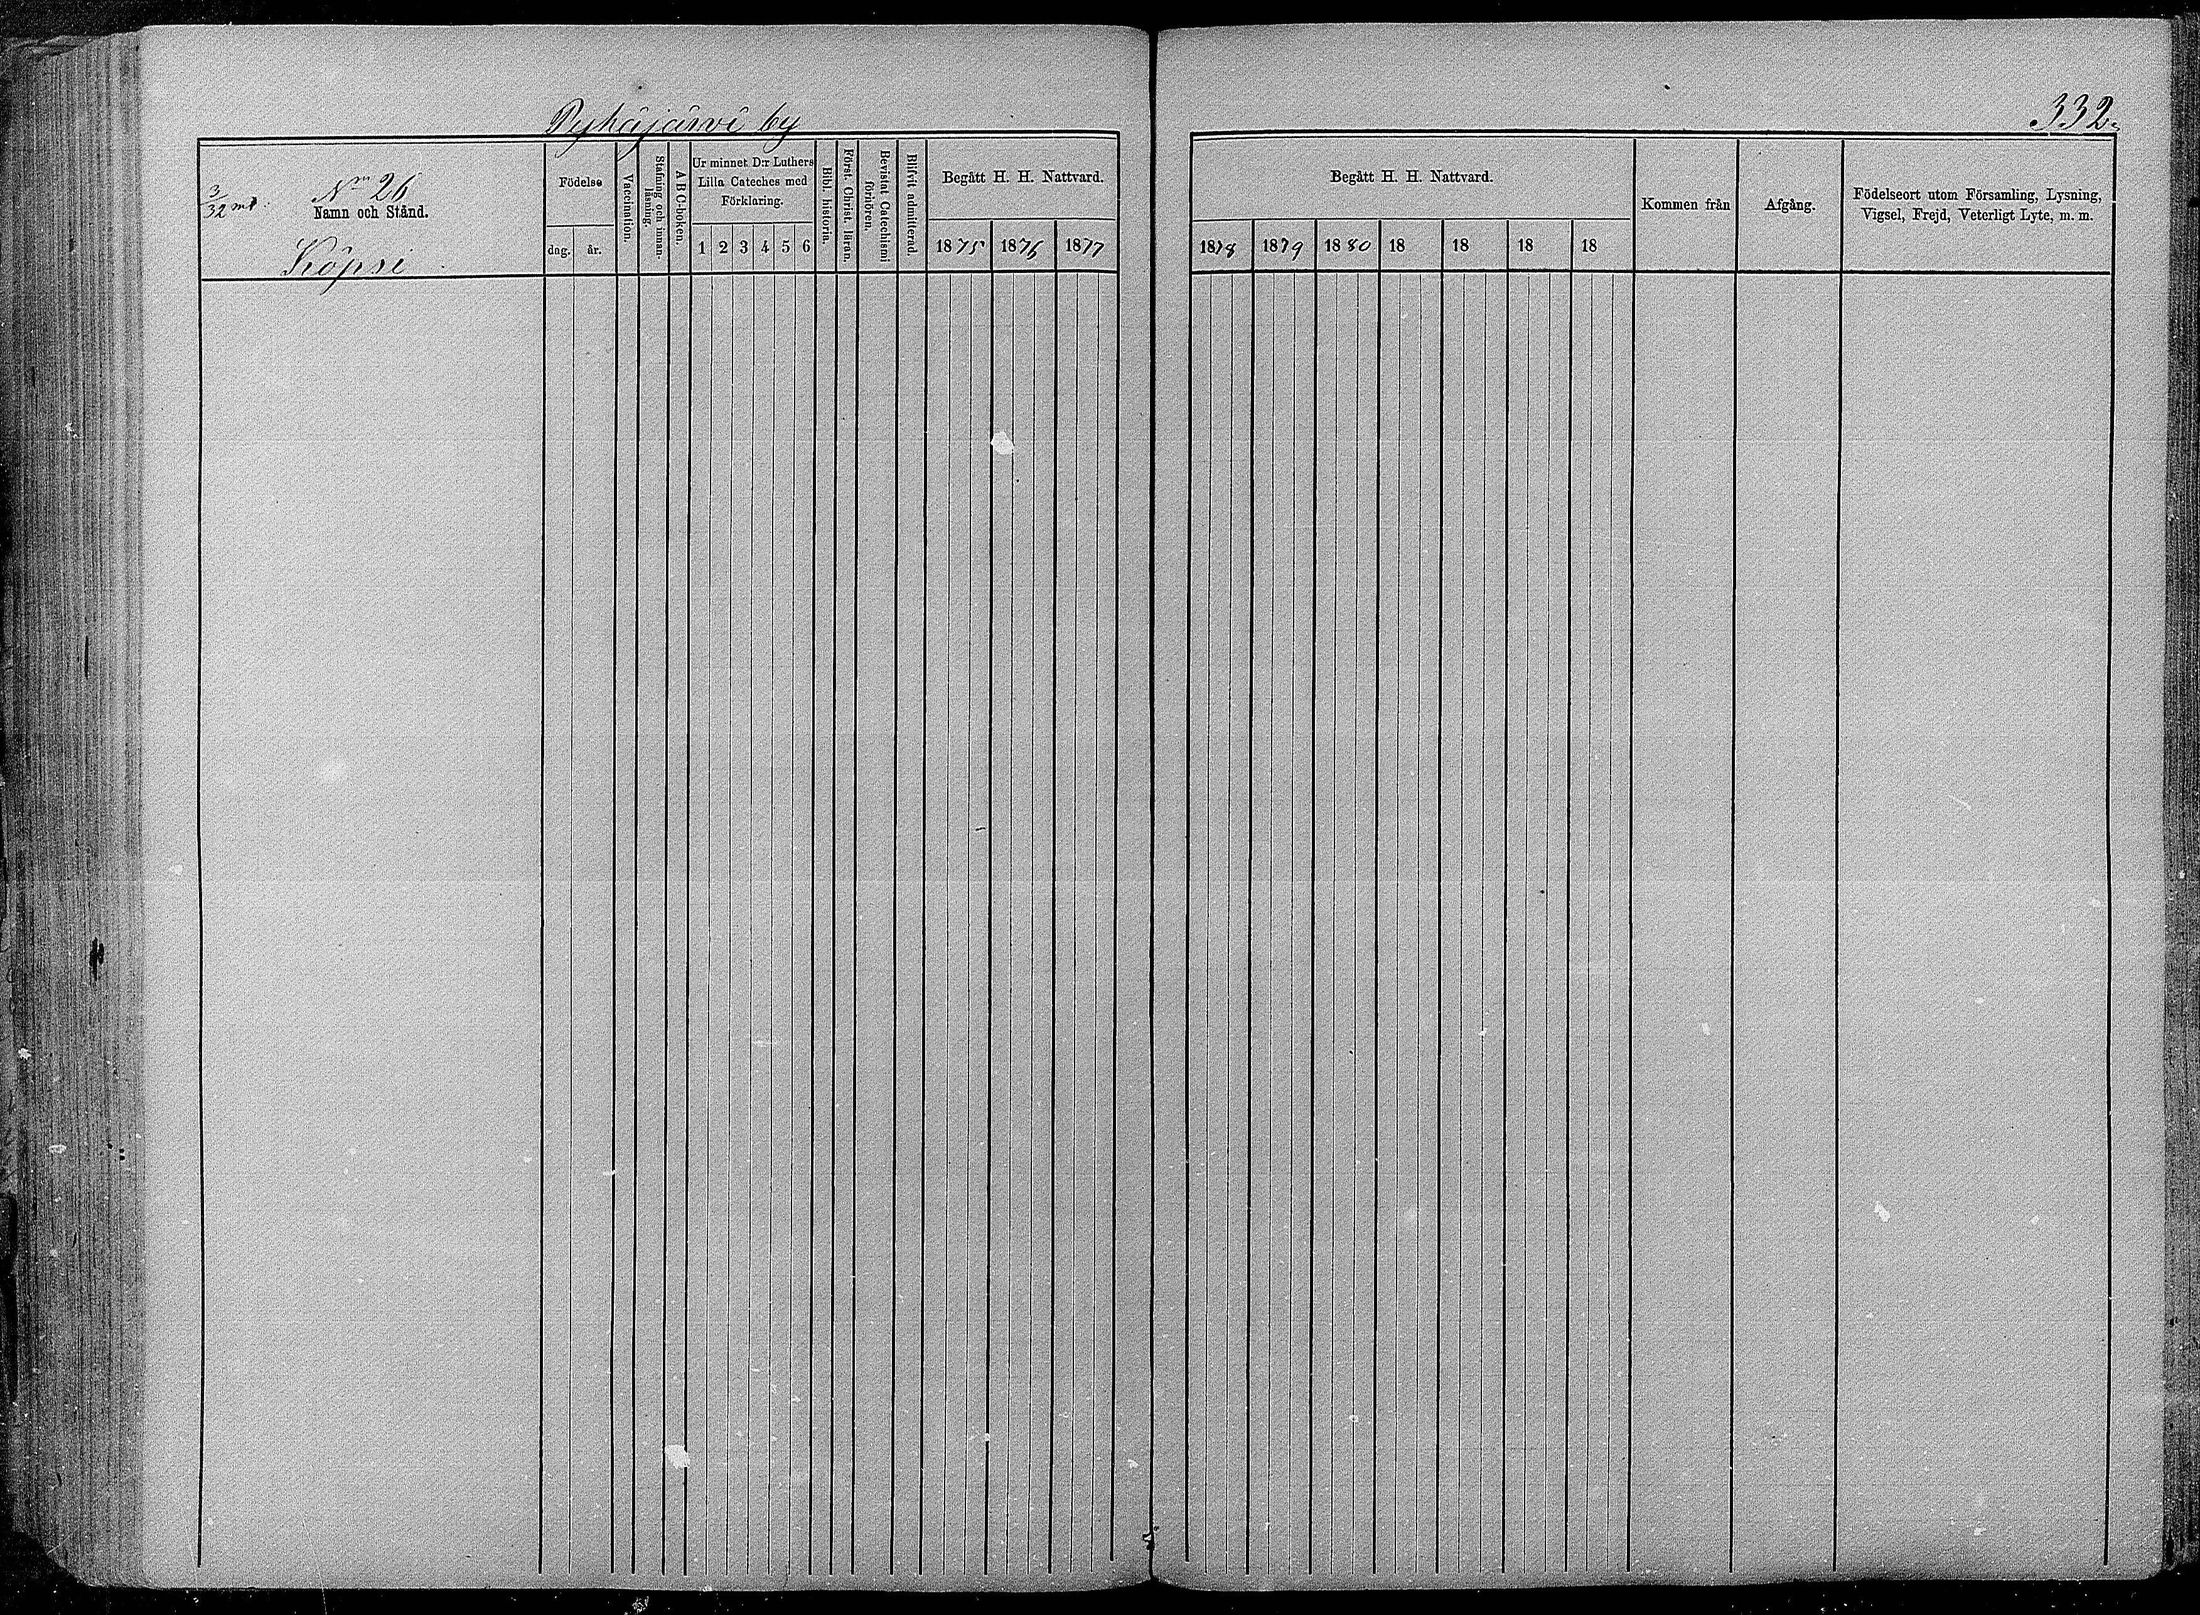 Pyhäjärvi by
332.
3/32 mt. No 26
Namn och Stånd.
Köpsi
Födelse
dag. år.
Vaccination.
Stafning och innan-
läsning.
A B C-boken.
Ur minnet D:r Luthers
Lilla Cateches med
Förklaring.
1 2 3 4 5 6
Bibl. historia.
Först. Christ. läran.
Bevistat Catechismi
förhören.
Blifvit admitterad.
Begått H. H. Nattvard.
1875 1876 1877
Begått H. H. Nattvard.
1878 1879 1880 18 18 18 18
Kommen från
Afgång.
Födelseort utom Församling, Lysning,
Vigsel, Frejd, Veterligt Lyte, m. m.